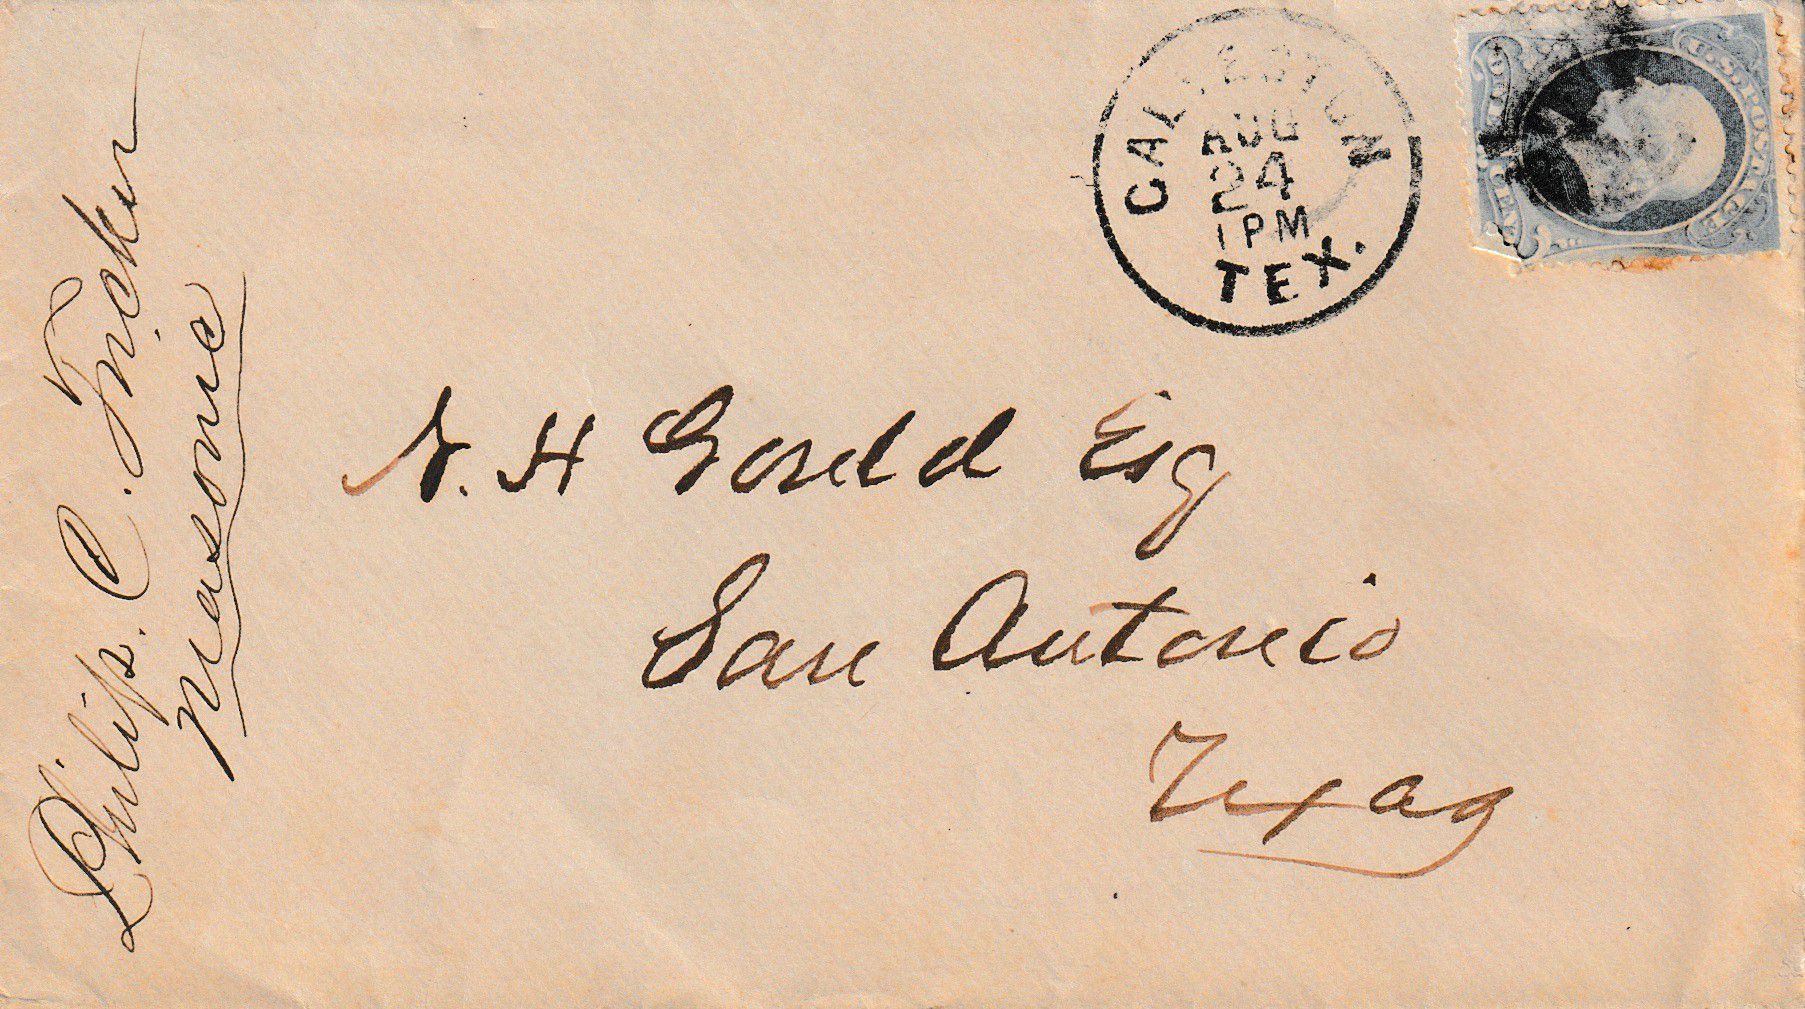 Philip. C. Tucker
Masonic
GALVESTON
AUG
24
1 PM
TEX.
U.S. POSTAGE
N. H Gould Esq
San Antonio
Texas